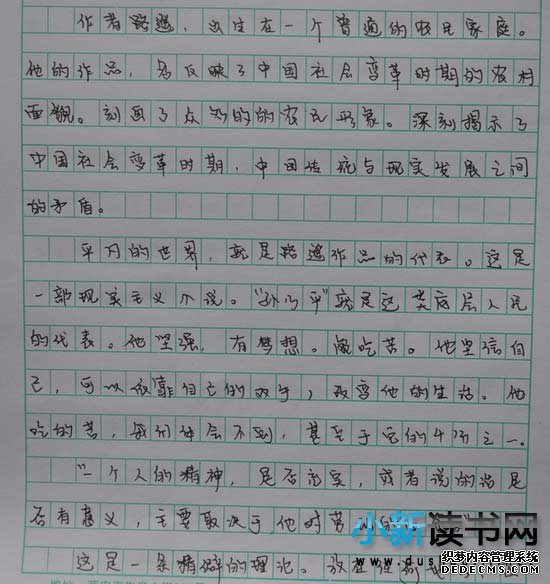 作者路遥，出生在一个普通的农民家庭。
他的作品，多反映了中国社会变革时期的农村
面貌。刻画了众多的的农民形象。深刻揭示了
中国社会变革时期，中国传统与现实发展之间
的矛盾。
平凡的世界，就是路遥作品的代表。这是
一部现实主义小说。"孙少平"就是这类底层人民
的代表。他坚强，有梦想。能吃苦。他坚信自
己，可以依靠自己的双手，改变他的生活。他
吃的苦，我们体会不到，甚至于它的4分之一。
"一个人的精神，是否充实，或者说的活是
否有意义，主要取决于他对劳动的
这是一条精辟的理论。放在
小新读书网
织梦内容管理系统